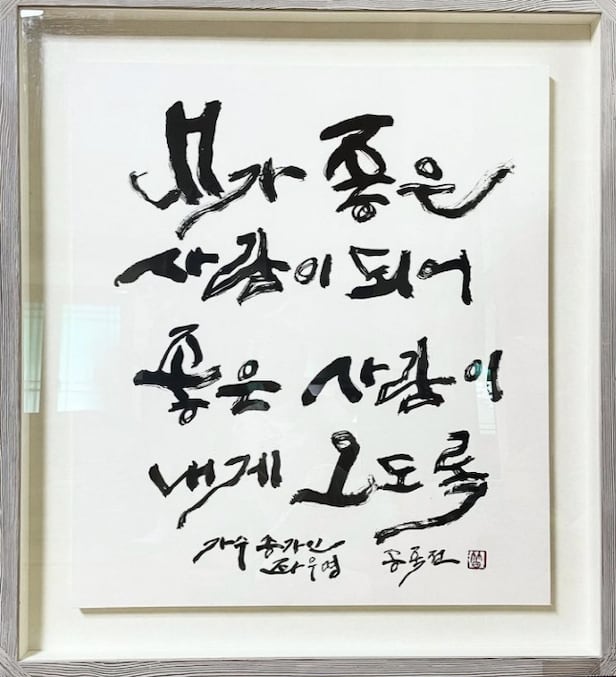 내가 좋은
사람이 되어
좋은 사람이
내게 오도록
가수 송가인